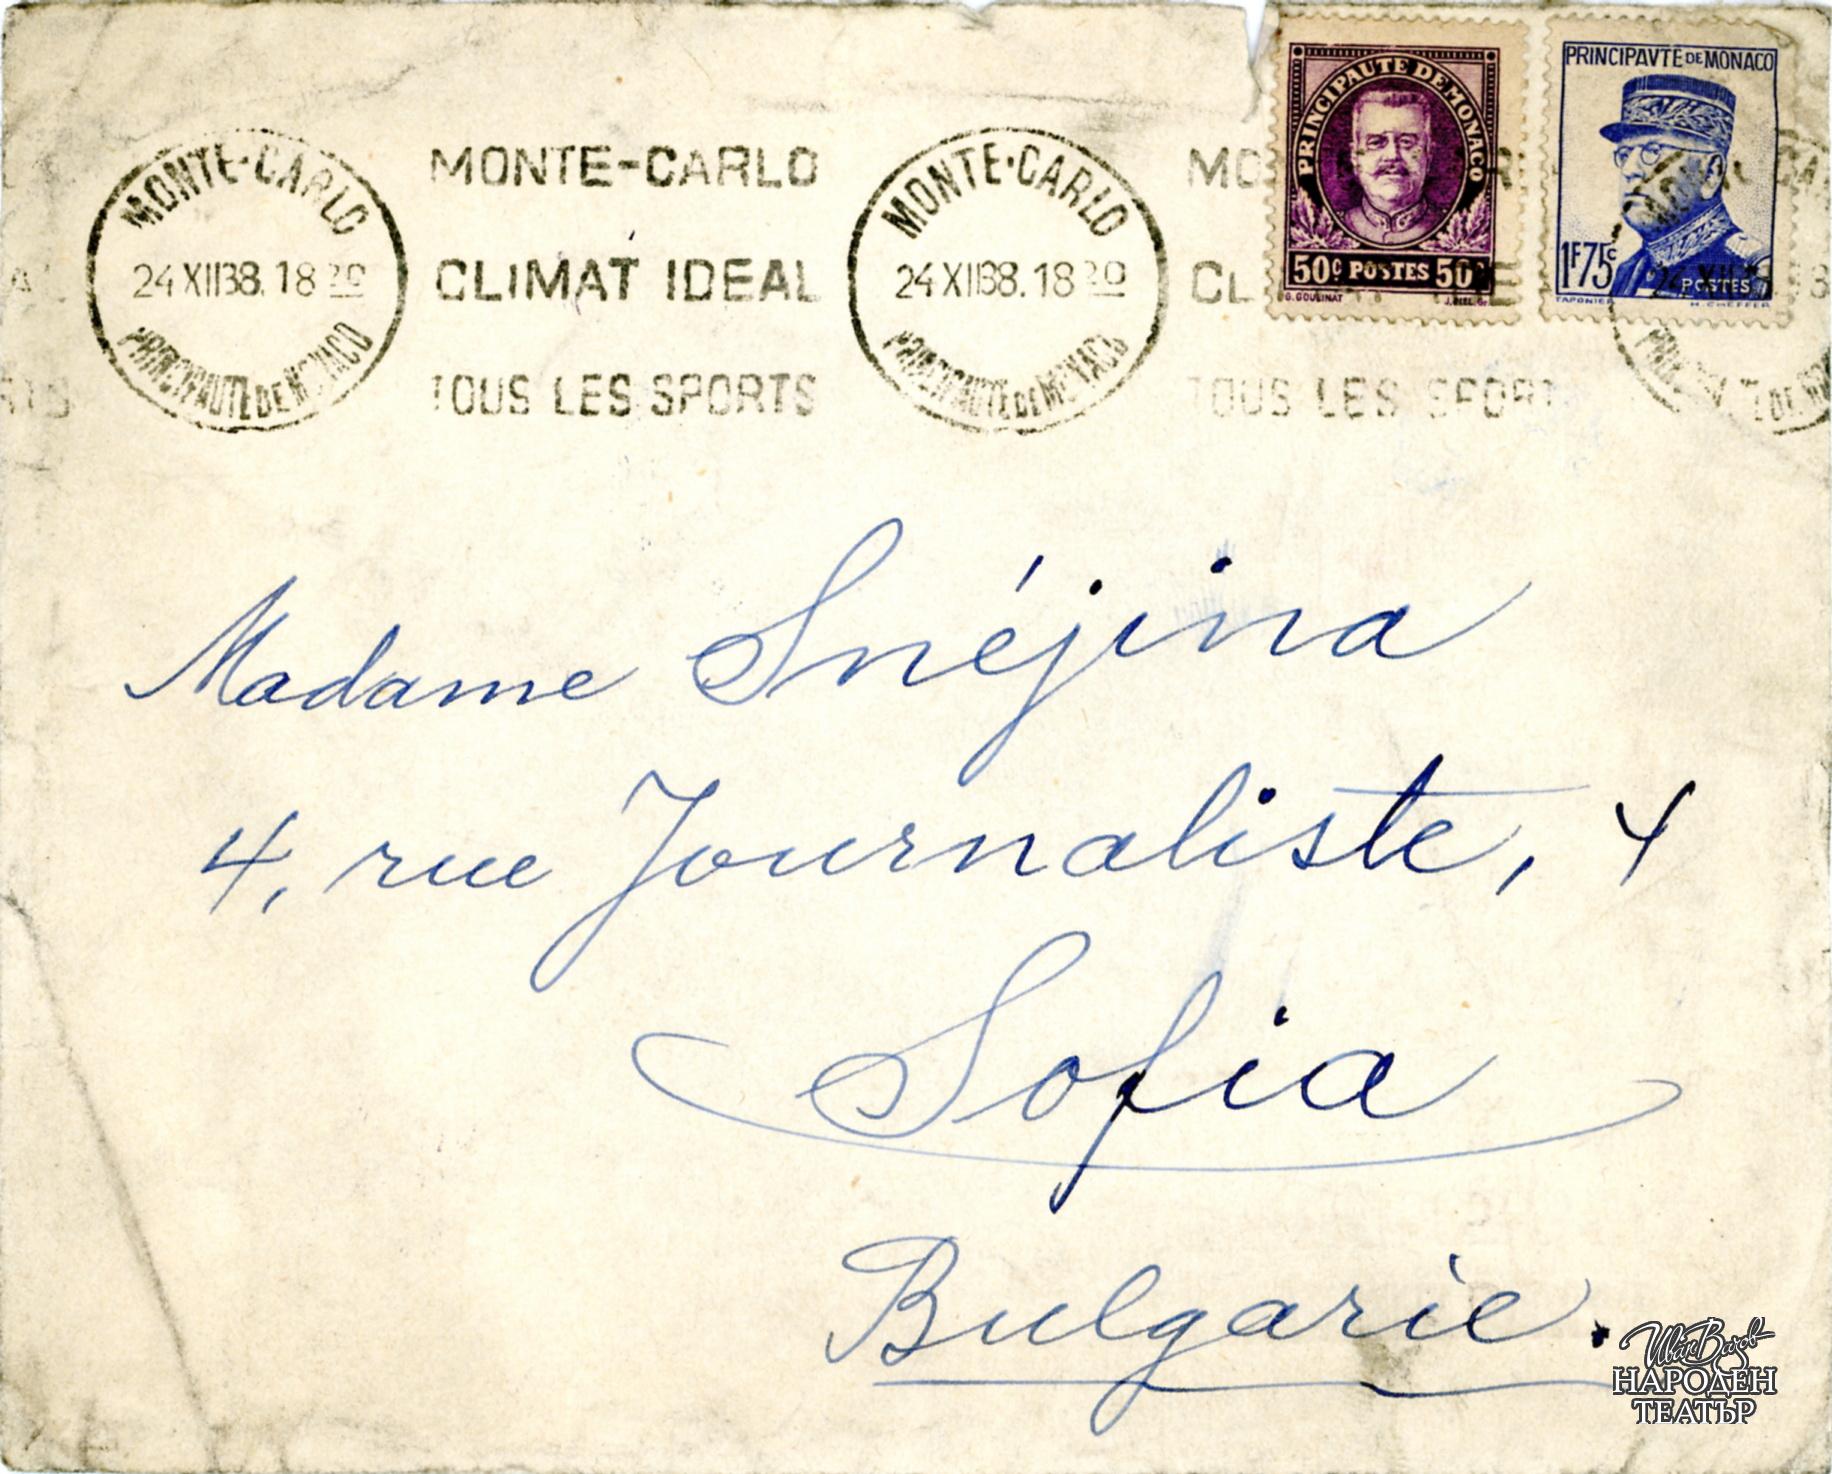 MONTE-CARLO
24 XII 38. 18 20
PRINCIPAUTE DE MONACO
MONTE-CARLO
CLIMAT IDEAL
TOUS LES SPORTS
MONTE-CARLO
24 XII 38. 18 20
PRINCIPAUTE DE MONACO
TOUS LES SPORT
PRINCIPAUTE DE MONACO
50c POSTES 50
G. GOUSINAT
PRINCIPAVTE DE MONACO
1F75c
POSTES
TAPONIER H. CHEFFER
Madame Snéjina
4, rue Journaliste, 4
Sofia
Bulgarie.
Иван Вазов
НАРОДЕН
ТЕАТЪР